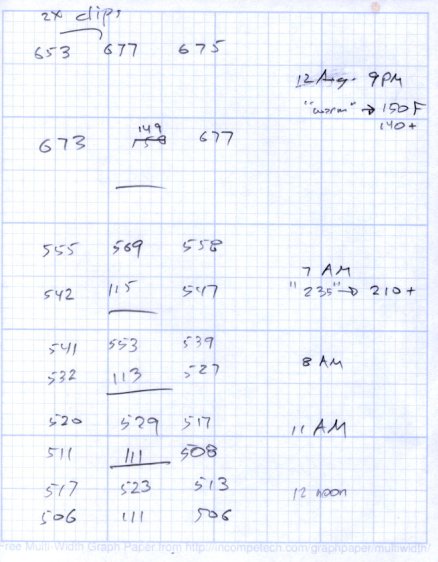 2x clips
653 677 675
12 Aug. 9PM
"warm" → 150F
140+
149
673 158 677
555 569 558
7 AM
542 115 547
"235" → 210+
541 553 539
8 AM
532 113 527
520 529 517
11 AM
511 111 508
517 523 513
12 noon
506 111 506
Free Multi-Width Graph Paper from http://incompetech.com/graphpaper/multiwidth/